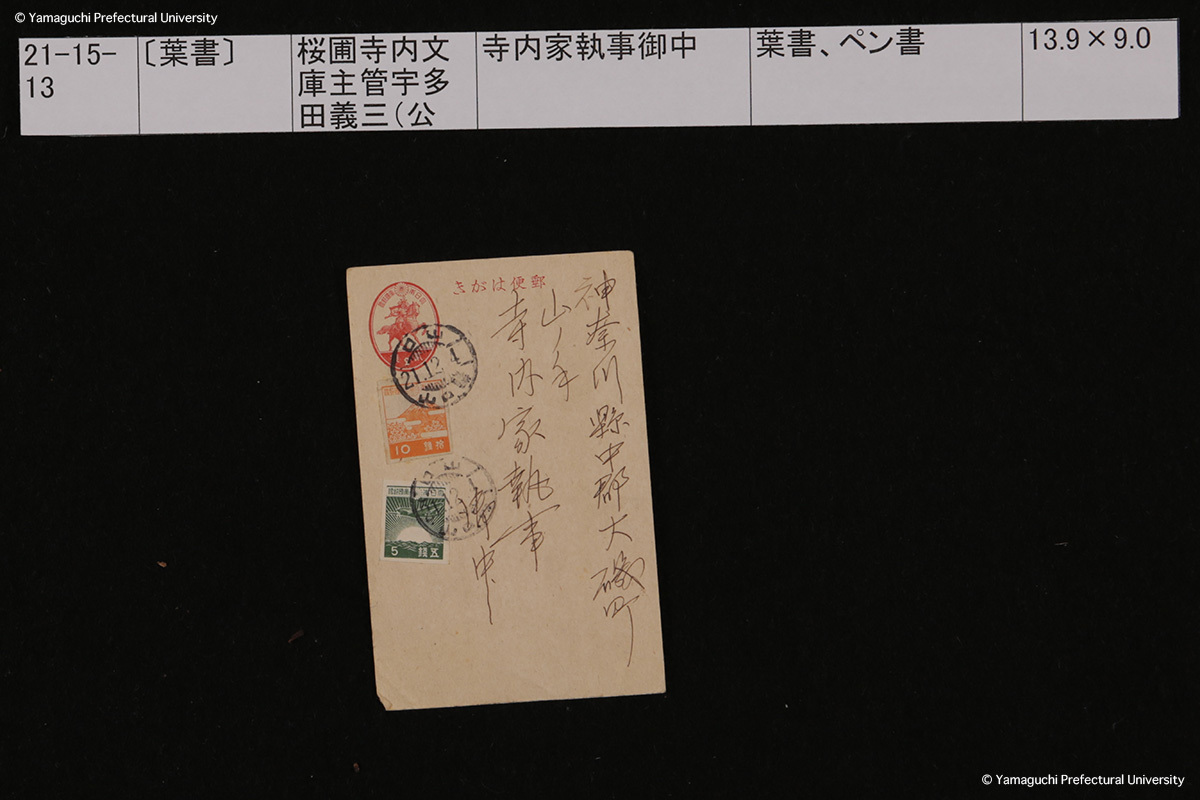 © Yamaguchi Prefectural University
21-15-
13
〔葉書〕
桜圃寺内文
庫主管宇多
田義三（公
寺内家執事御中
葉書、ペン書
13.9×9.0
郵便はがき
神奈川縣中郡大磯町
山ノ手
寺内家執事
御中
21.12
10 拾銭
5 五銭
© Yamaguchi Prefectural University